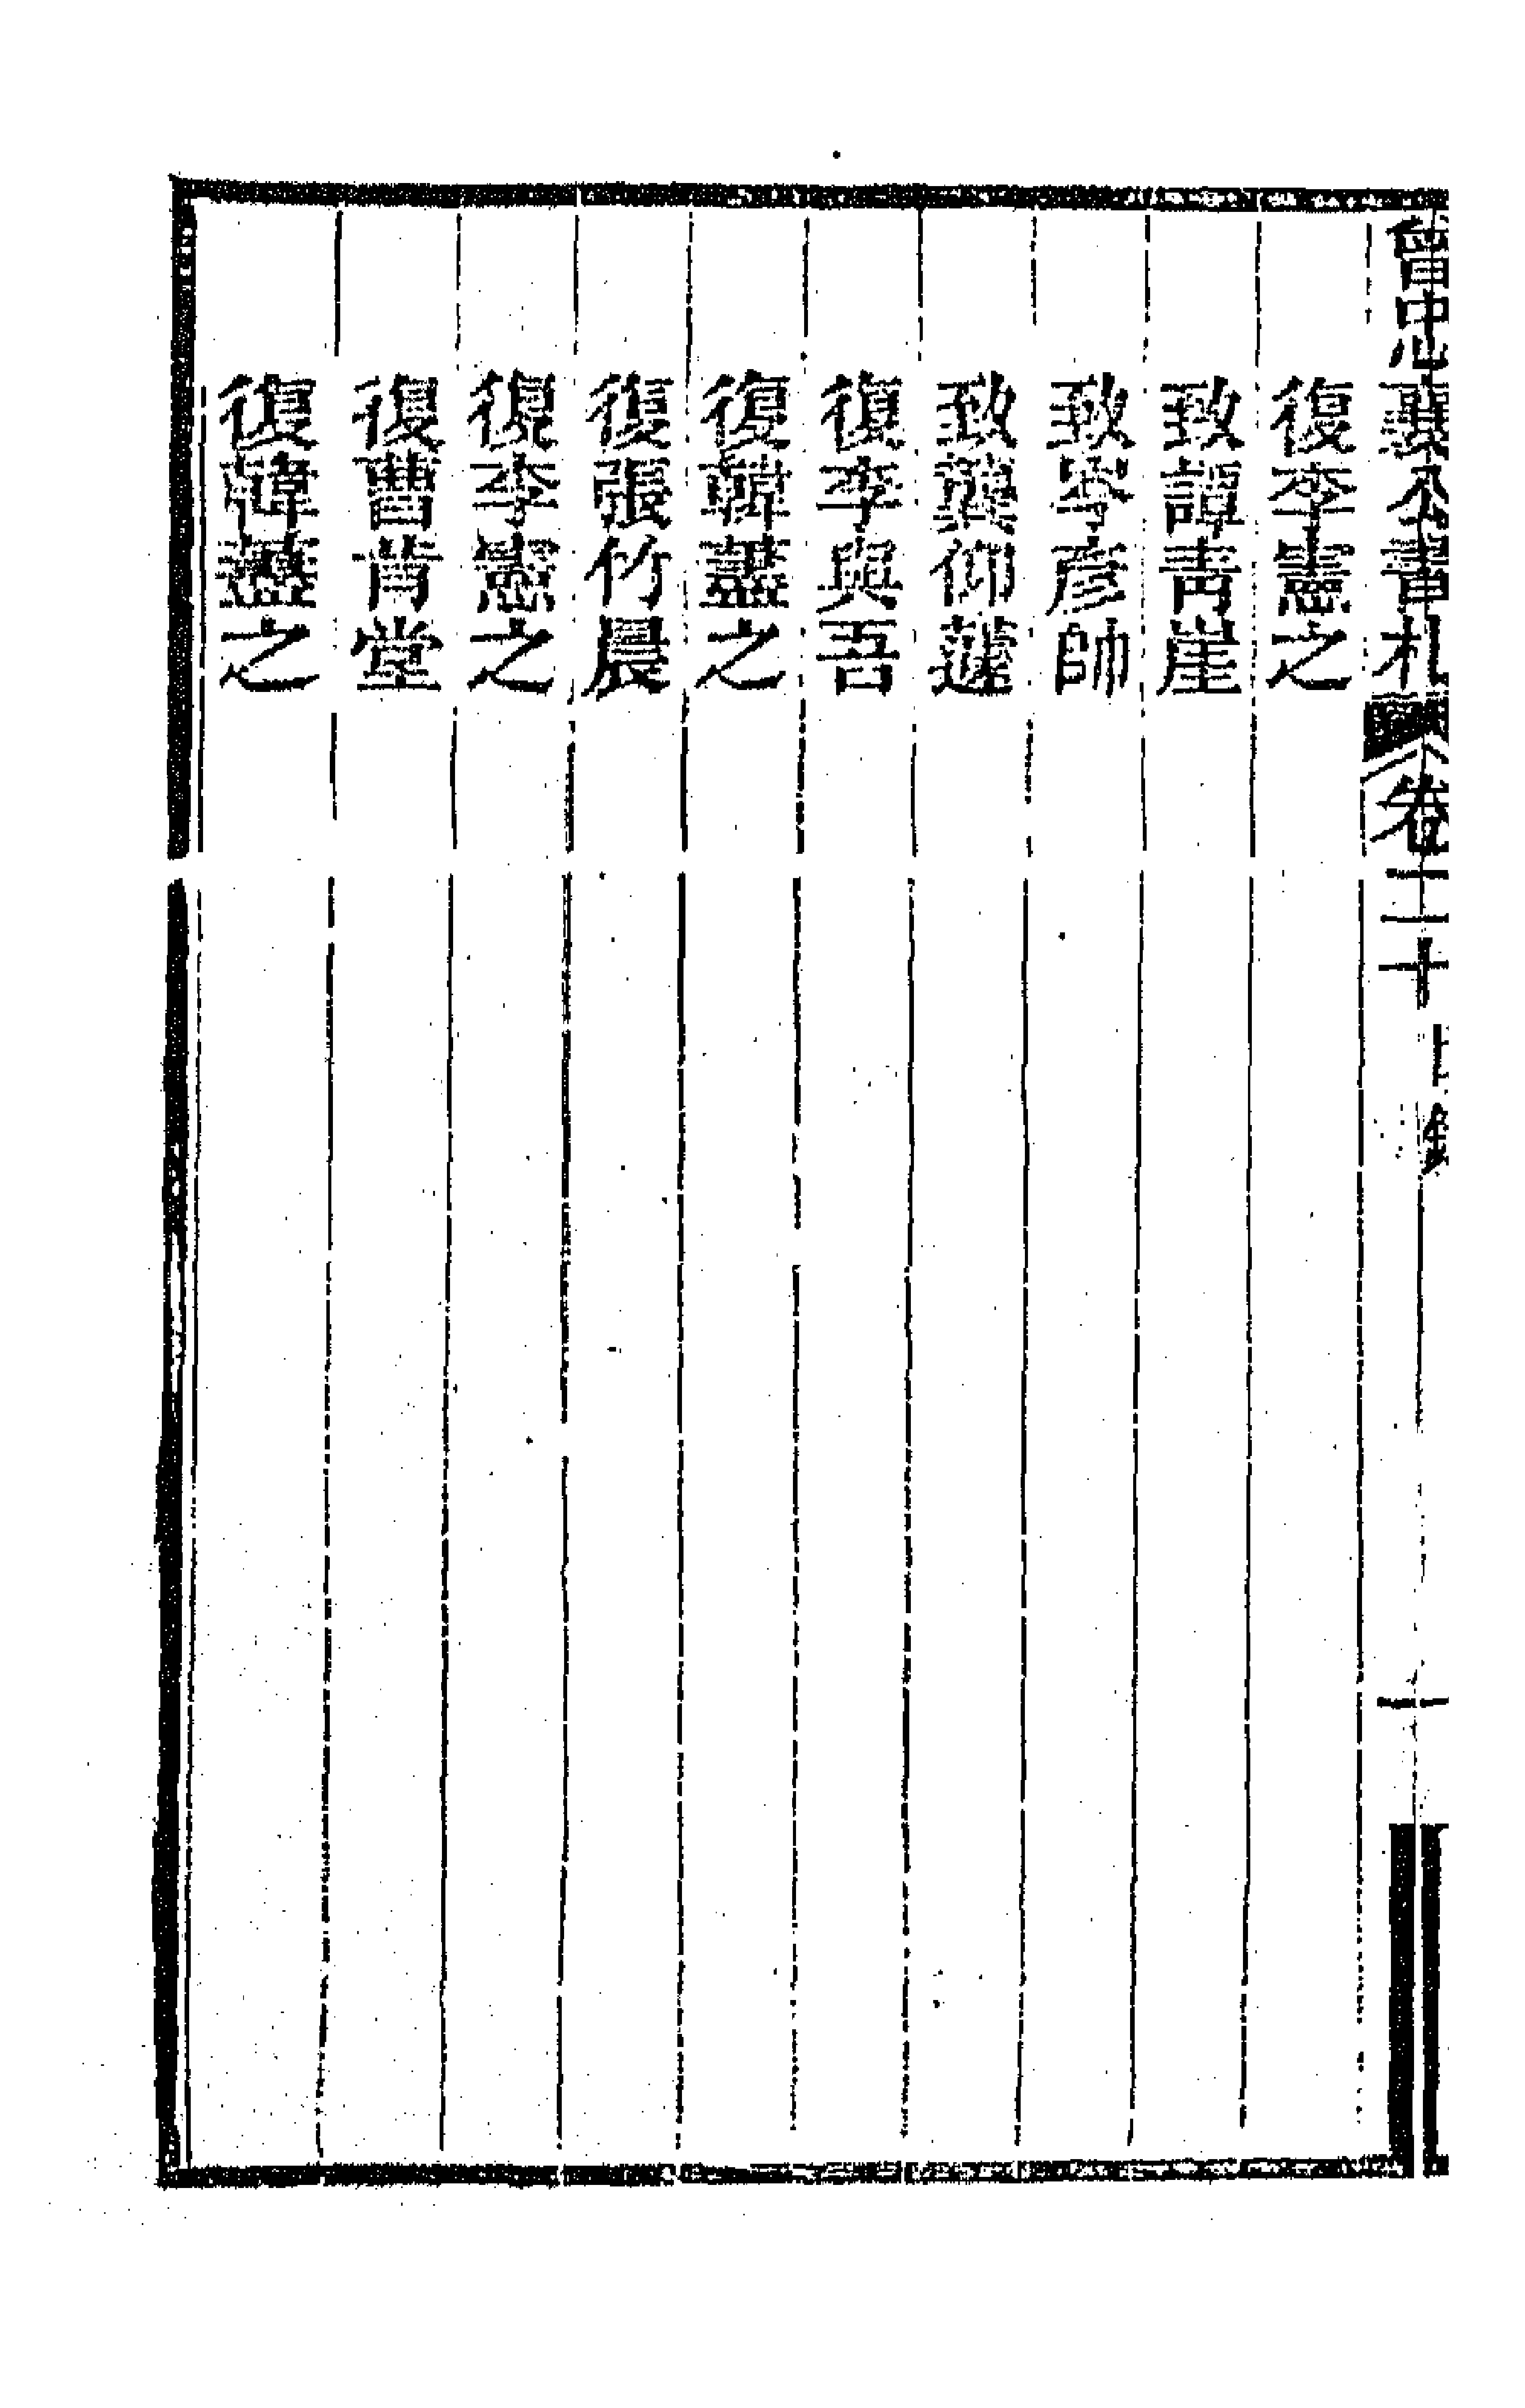 曾忠襄公書札 卷二十 目錄 一
復李憲之
致譚青崖
致李彥帥
致龔仰蘧
復李與吾
復韓藎之
復張竹晨
復李憲之
復曹藎堂
復韓藎之